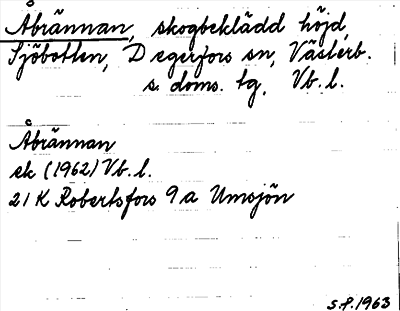 Åbrännan, skogbeklädd höjd,
Sjöbotten, Degerfors sn, Västerb.
s. doms. tg. Vb. l.
Åbrännan
ek (1962) Vb. l.
21 K Robertsfors 9 a Umsjön
S.P. 1963